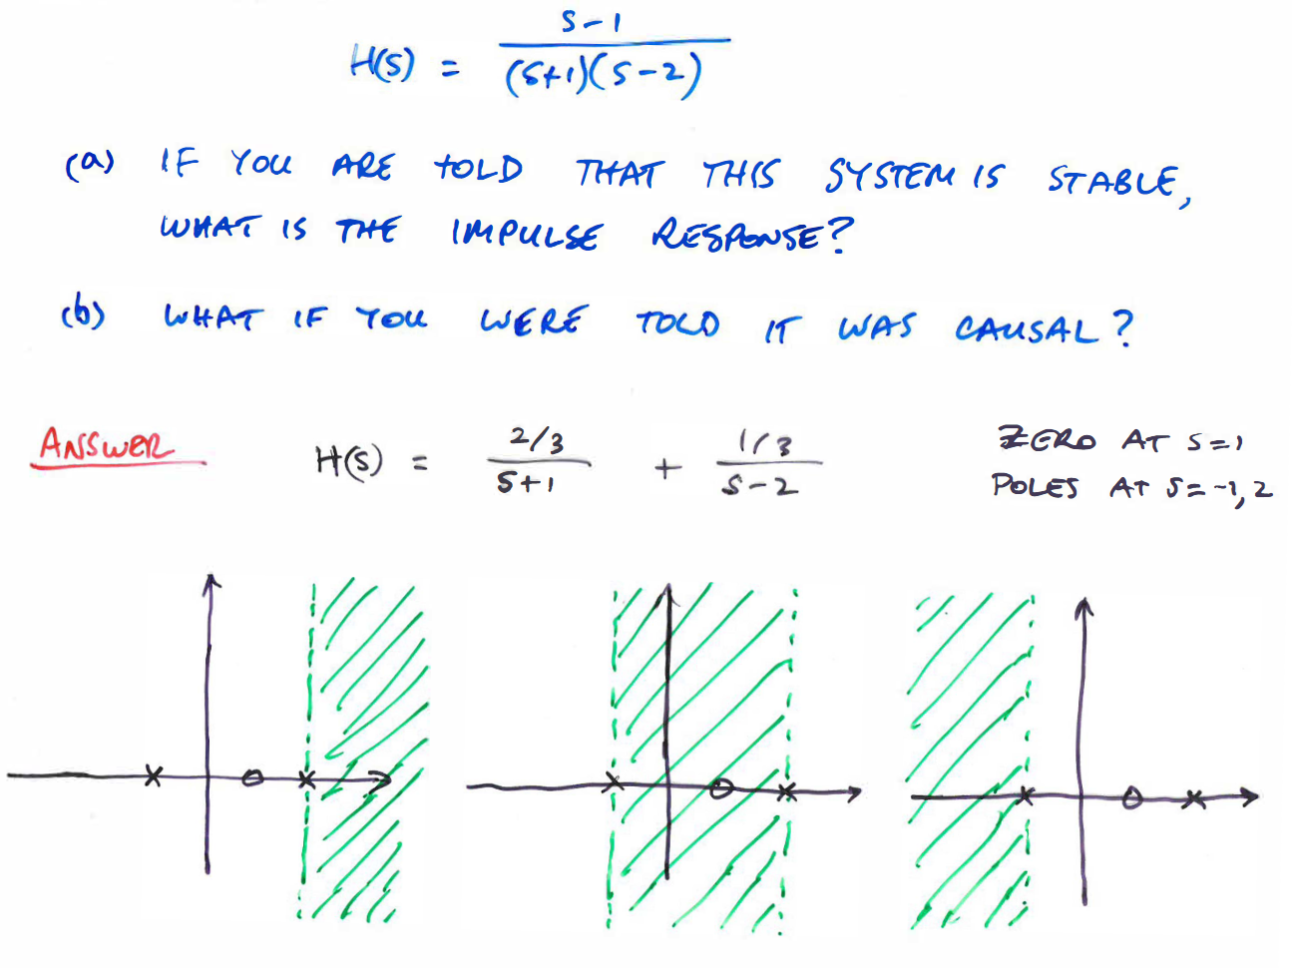 H(s) = s-1 / (s+1)(s-2)
(a) IF YOU ARE TOLD THAT THIS SYSTEM IS STABLE,
WHAT IS THE IMPULSE RESPONSE?
(b) WHAT IF YOU WERE TOLD IT WAS CAUSAL?
ANSWER
H(s) = 2/3 / s+1 + 1/3 / s-2
ZERO AT S=1
POLES AT S=-1,2